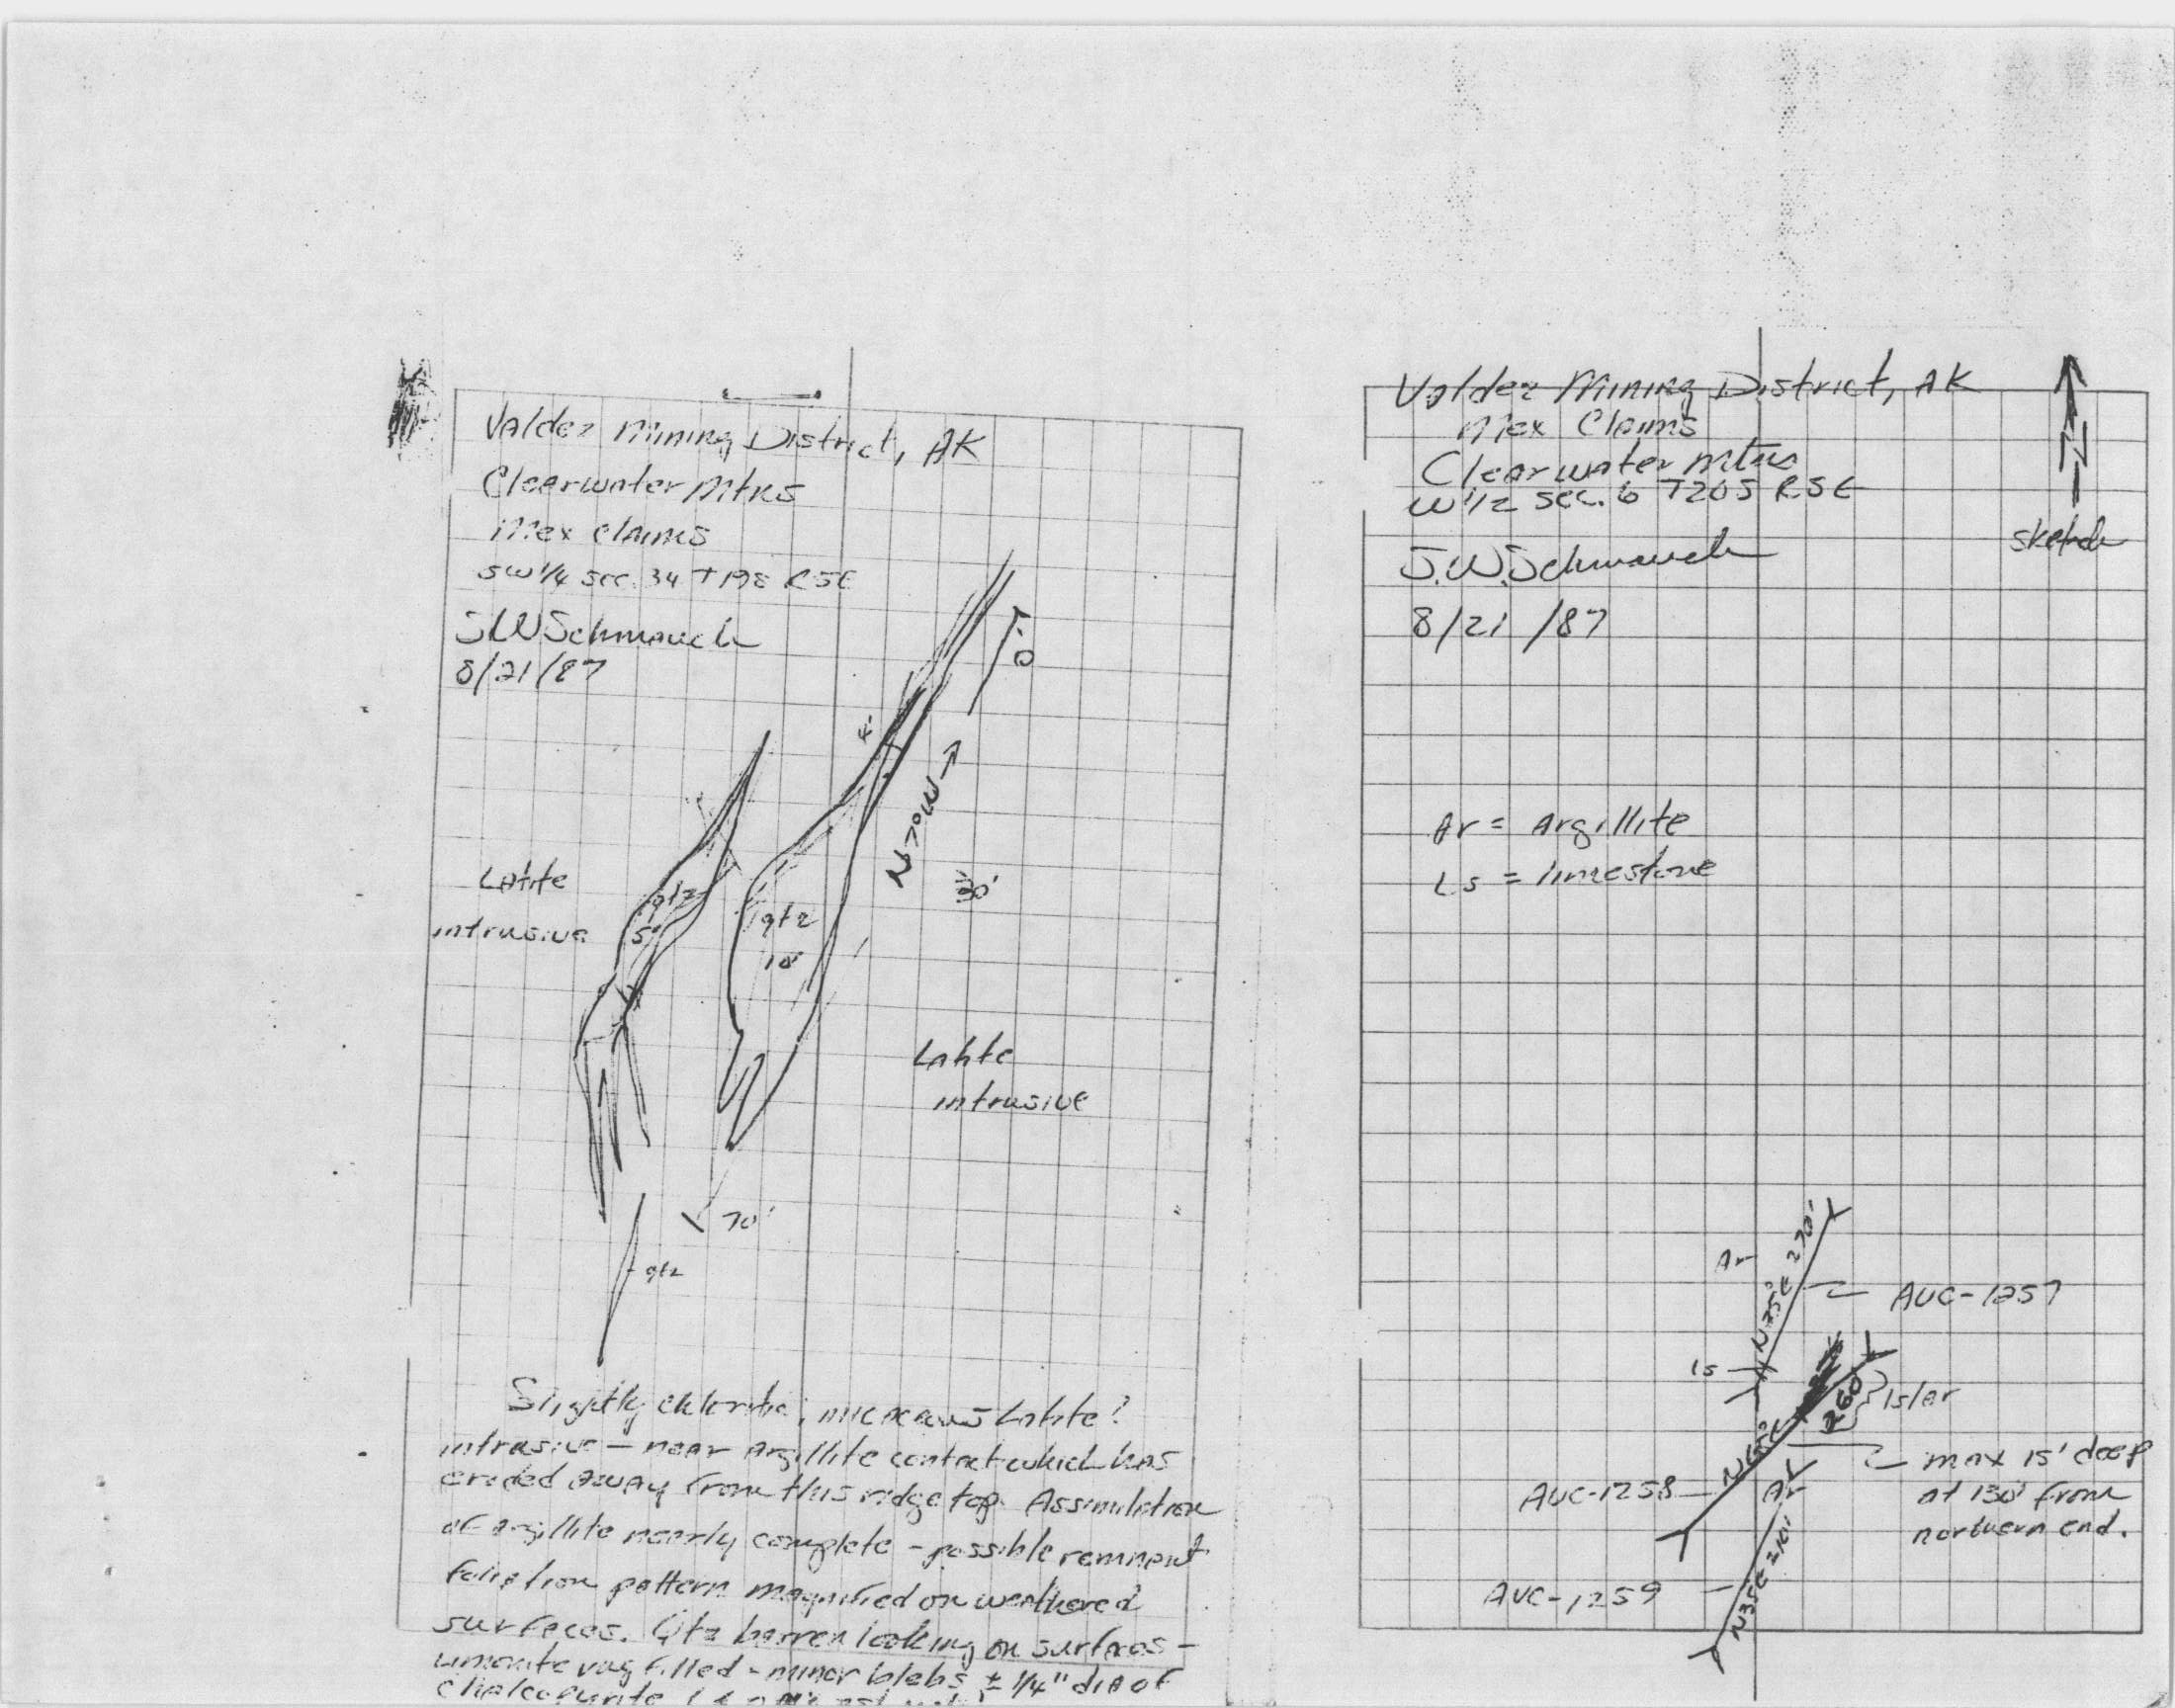 Valdez Mining District, AK
Clearwater Mtns
Mex claims
SW 1/4 sec. 34 T19S R5E
JWSchmauch
8/21/87
4'
N70W →
30'
Latite
intrusive
qtz
5'
qtz
10'
Latite
intrusive
70'
qtz
Slightly chloritic, micaceous Latite?
intrusive — near Argillite contact which has
eroded away from this ridge top. Assimilation
of argillite nearly complete - possible remnant
foliation pattern magnified on weathered
surfaces. Qtz barren looking on surfaces -
limonite vug filled - minor blebs ± 1/4" dia of
chalcopyrite
Valdez Mining District, AK
Mex Claims
Clearwater Mtns
W 1/2 sec. 6 T20S R5E
J.W.Schmauch
8/21/87
sketch
Ar = Argillite
Ls = limestone
Ar
N35°E 270'
AUC-1257
ls
260'
ls/ar
N65°E
max 15' deep
at 130' from
northern end.
AUC-1258
Ar
AUC-1259
N35E 210'